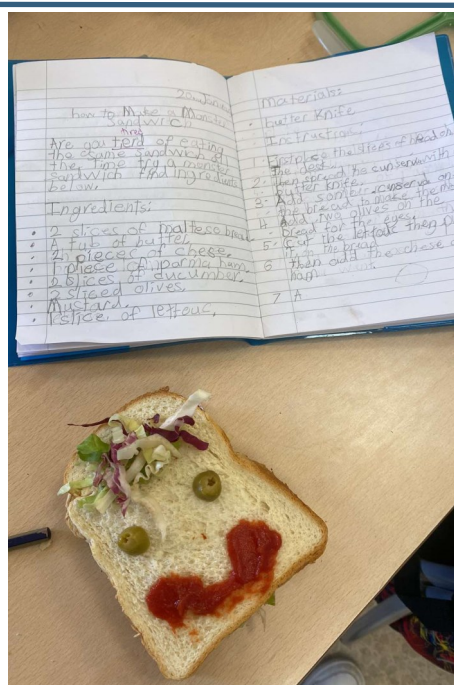 20 Janua
how to Make a Monster
Sandwich
tired
Are you terd of eating
the same sandwich all
the time try a monster
sandwich find ingredients
below.
Ingredients:
• 2 slices of malteso bread
• A tub of butter,
• 2 pieces of cheese,
• 1 piece of parma ham,
• 2 slices of cucumber,
• 2 sliced olives,
• Mustard,
• 1 slice of lettouc,
Materials:
• butter Knife
Instruction:
1. the slices of bread on
the desk
2. then spread the with
butter knife.
3. Add some on
the bread to make
4. Add two olives on the
bread for the eyes.
5. Cut the lettouc then
in the bread
6 then add the cheese
ham
7 A